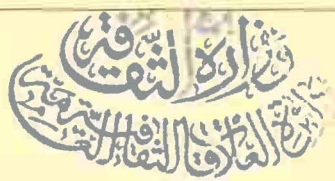 وزارة الثقافة
إدارة العلاقات الثقافية العربية